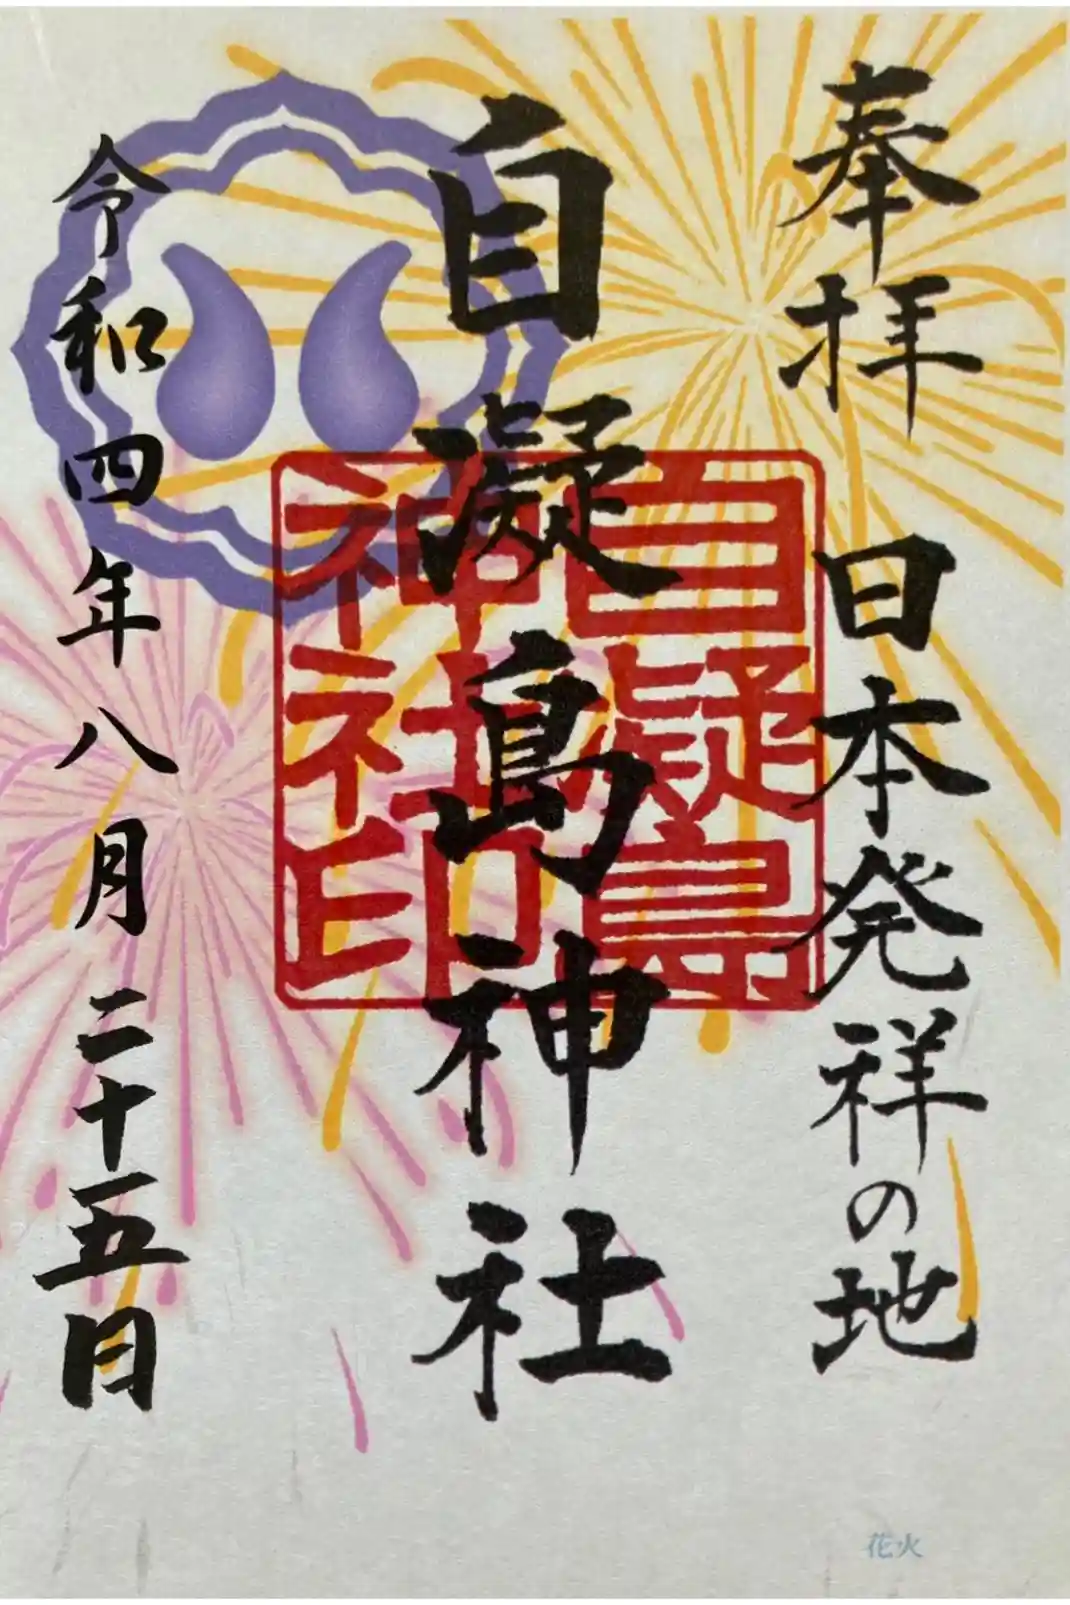 奉拝
日本発祥の地
自凝島神社
自凝島
神社印
令和四年八月二十五日
花火